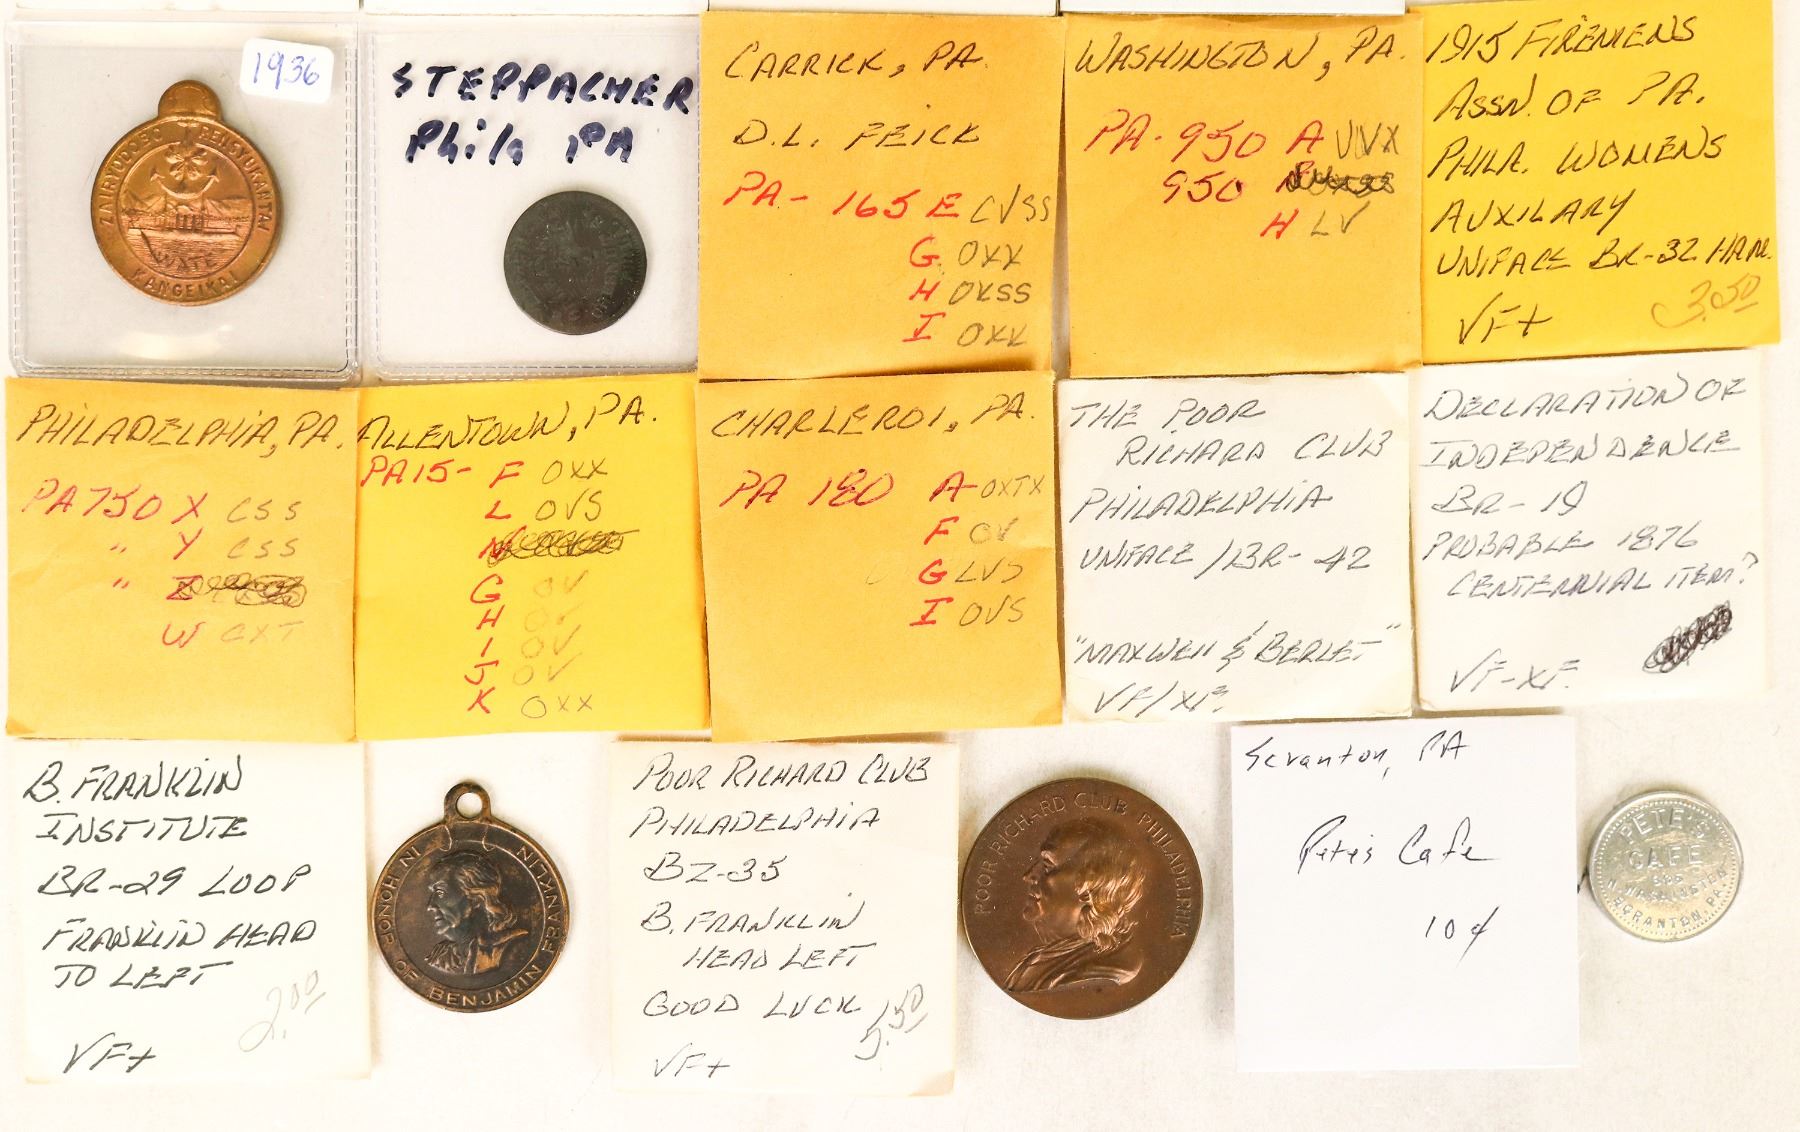 1936
ZAIRYODOBO RENSYUKANTAI
WATE
KANGEIKAI
STEPPACHER
Phila PA
CARRICK, PA.
D.L. FEICK
PA- 165 E CVSS
G OXX
H OXSS
I OXX
WASHINGTON, PA.
PA- 950 A VVX
950
H LV
1915 FIREMENS
ASSN. OF PA.
PHILA. WOMENS
AUXILARY
UNIFACE BR-32 HANE.
VF+
3.50
PHILADELPHIA, PA.
PA 750 X CSS
" Y CSS
" Z
W CXT
ALLENTOWN, PA.
PA15- F OXX
L OVS
G OV
H OV
I OV
J OV
K OXX
CHARLEROI, PA.
PA 180 A OXTX
F OV
G LVS
I OVS
THE POOR
RICHARD CLUB
PHILADELPHIA
UNIFACE / BR-42
"MAXWELL & BERLET"
VF/XF.
DECLARATION OF
INDEPENDENCE
BR-19
PROBABLE 1876
CENTENNIAL ITEM?
VF-XF.
B. FRANKLIN
INSTITUTE
BR-29 LOOP
FRANKLIN HEAD
TO LEFT
2.00
VF+
IN HONOR OF BENJAMIN FRANKLIN
POOR RICHARD CLUB
PHILADELPHIA
BZ-35
B. FRANKLIN
HEAD LEFT
GOOD LUCK
5.50
VF+
POOR RICHARD CLUB PHILADELPHIA
Scranton, PA
Pete's Cafe
10¢
PETE'S
CAFE
N. WASHINGTON
SCRANTON, PA.